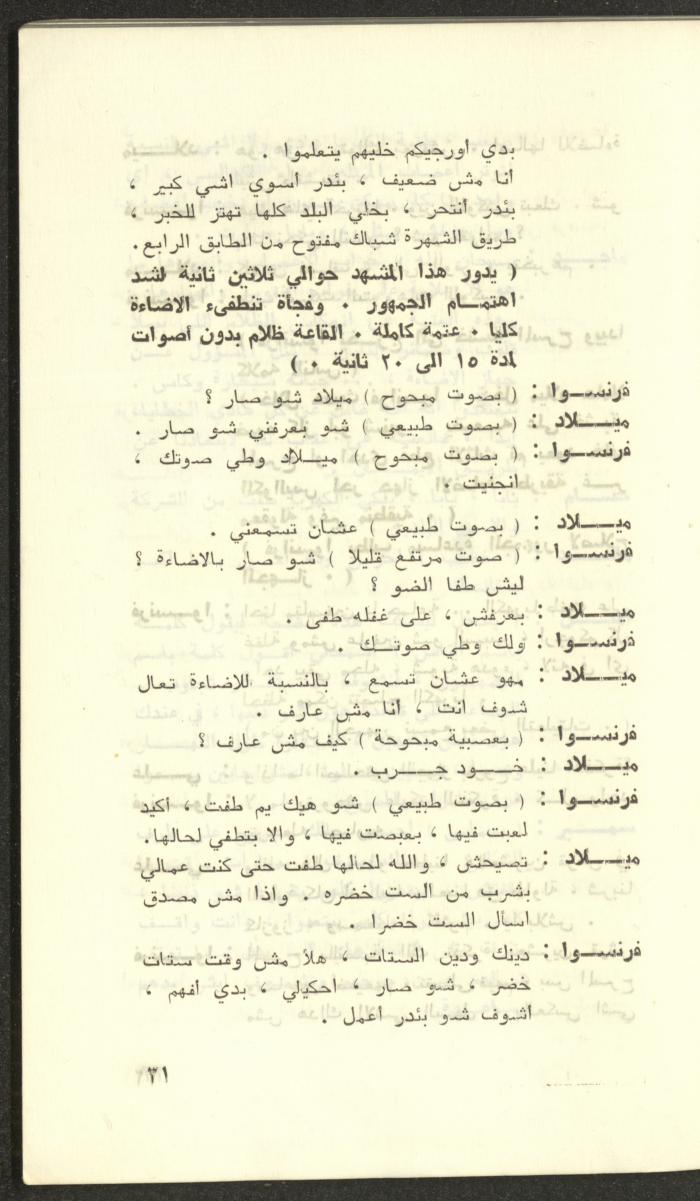 بدي اورجيكم خليهم يتعلموا .
أنا مش ضعيف ، بئدر أسوي اشي كبير ،
بئدر أنتحر ، بخلي البلد كلها تهتز للخبر ،
طريق الشهرة شباك مفتوح من الطابق الرابع.
( يدور هذا المشهد حوالي ثلاثين ثانية لشد
اهتمـــام الجمهور . وفجأة تنطفىء الاضاءة
كليا . عتمة كاملة . القاعة ظلام بدون أصوات
لمدة ١٥ الى ٢٠ ثانية . )
فرنســوا : ( بصوت مبحوح ) ميلاد شو صار ؟
ميـــلاد : ( بصوت طبيعي ) شو بعرفني شو صار .
فرنســوا : ( بصوت مبحوح ) ميـــلاد وطي صوتك ،
انجنيت .
ميـــلاد : ( بصوت طبيعي ) عشان تسمعني .
فرنســوا : ( صوت مرتفع قليلا ) شو صار بالاضاءة ؟
ليش طفا الضو ؟
ميـــلاد : بعرفش ، على غفله طفى .
فرنســوا : ولك وطي صوتـــك .
ميـــلاد : مهو عشان تسمع ، بالنسبة للاضاءة تعال
شوف انت ، أنا مش عارف .
فرنســوا : ( بعصبية مبحوحة ) كيف مش عارف ؟
ميـــلاد : خـــود جـــرب .
فرنســوا : ( بصوت طبيعي ) شو هيك يم طفت ، أكيد
لعبت فيها ، بعبصت فيها ، والا بتطفي لحالها.
ميـــلاد : تصيحش ، والله لحالها طفت حتى كنت عمالي
بشرب من الست خضره . واذا مش مصدق
اسأل الست خضرا .
فرنســوا : دينك ودين الستات ، هلأ مش وقت ستات
خضر ، شو صار ، احكيلي ، بدي أفهم ،
أشوف شو بئدر أعمل .
٣١